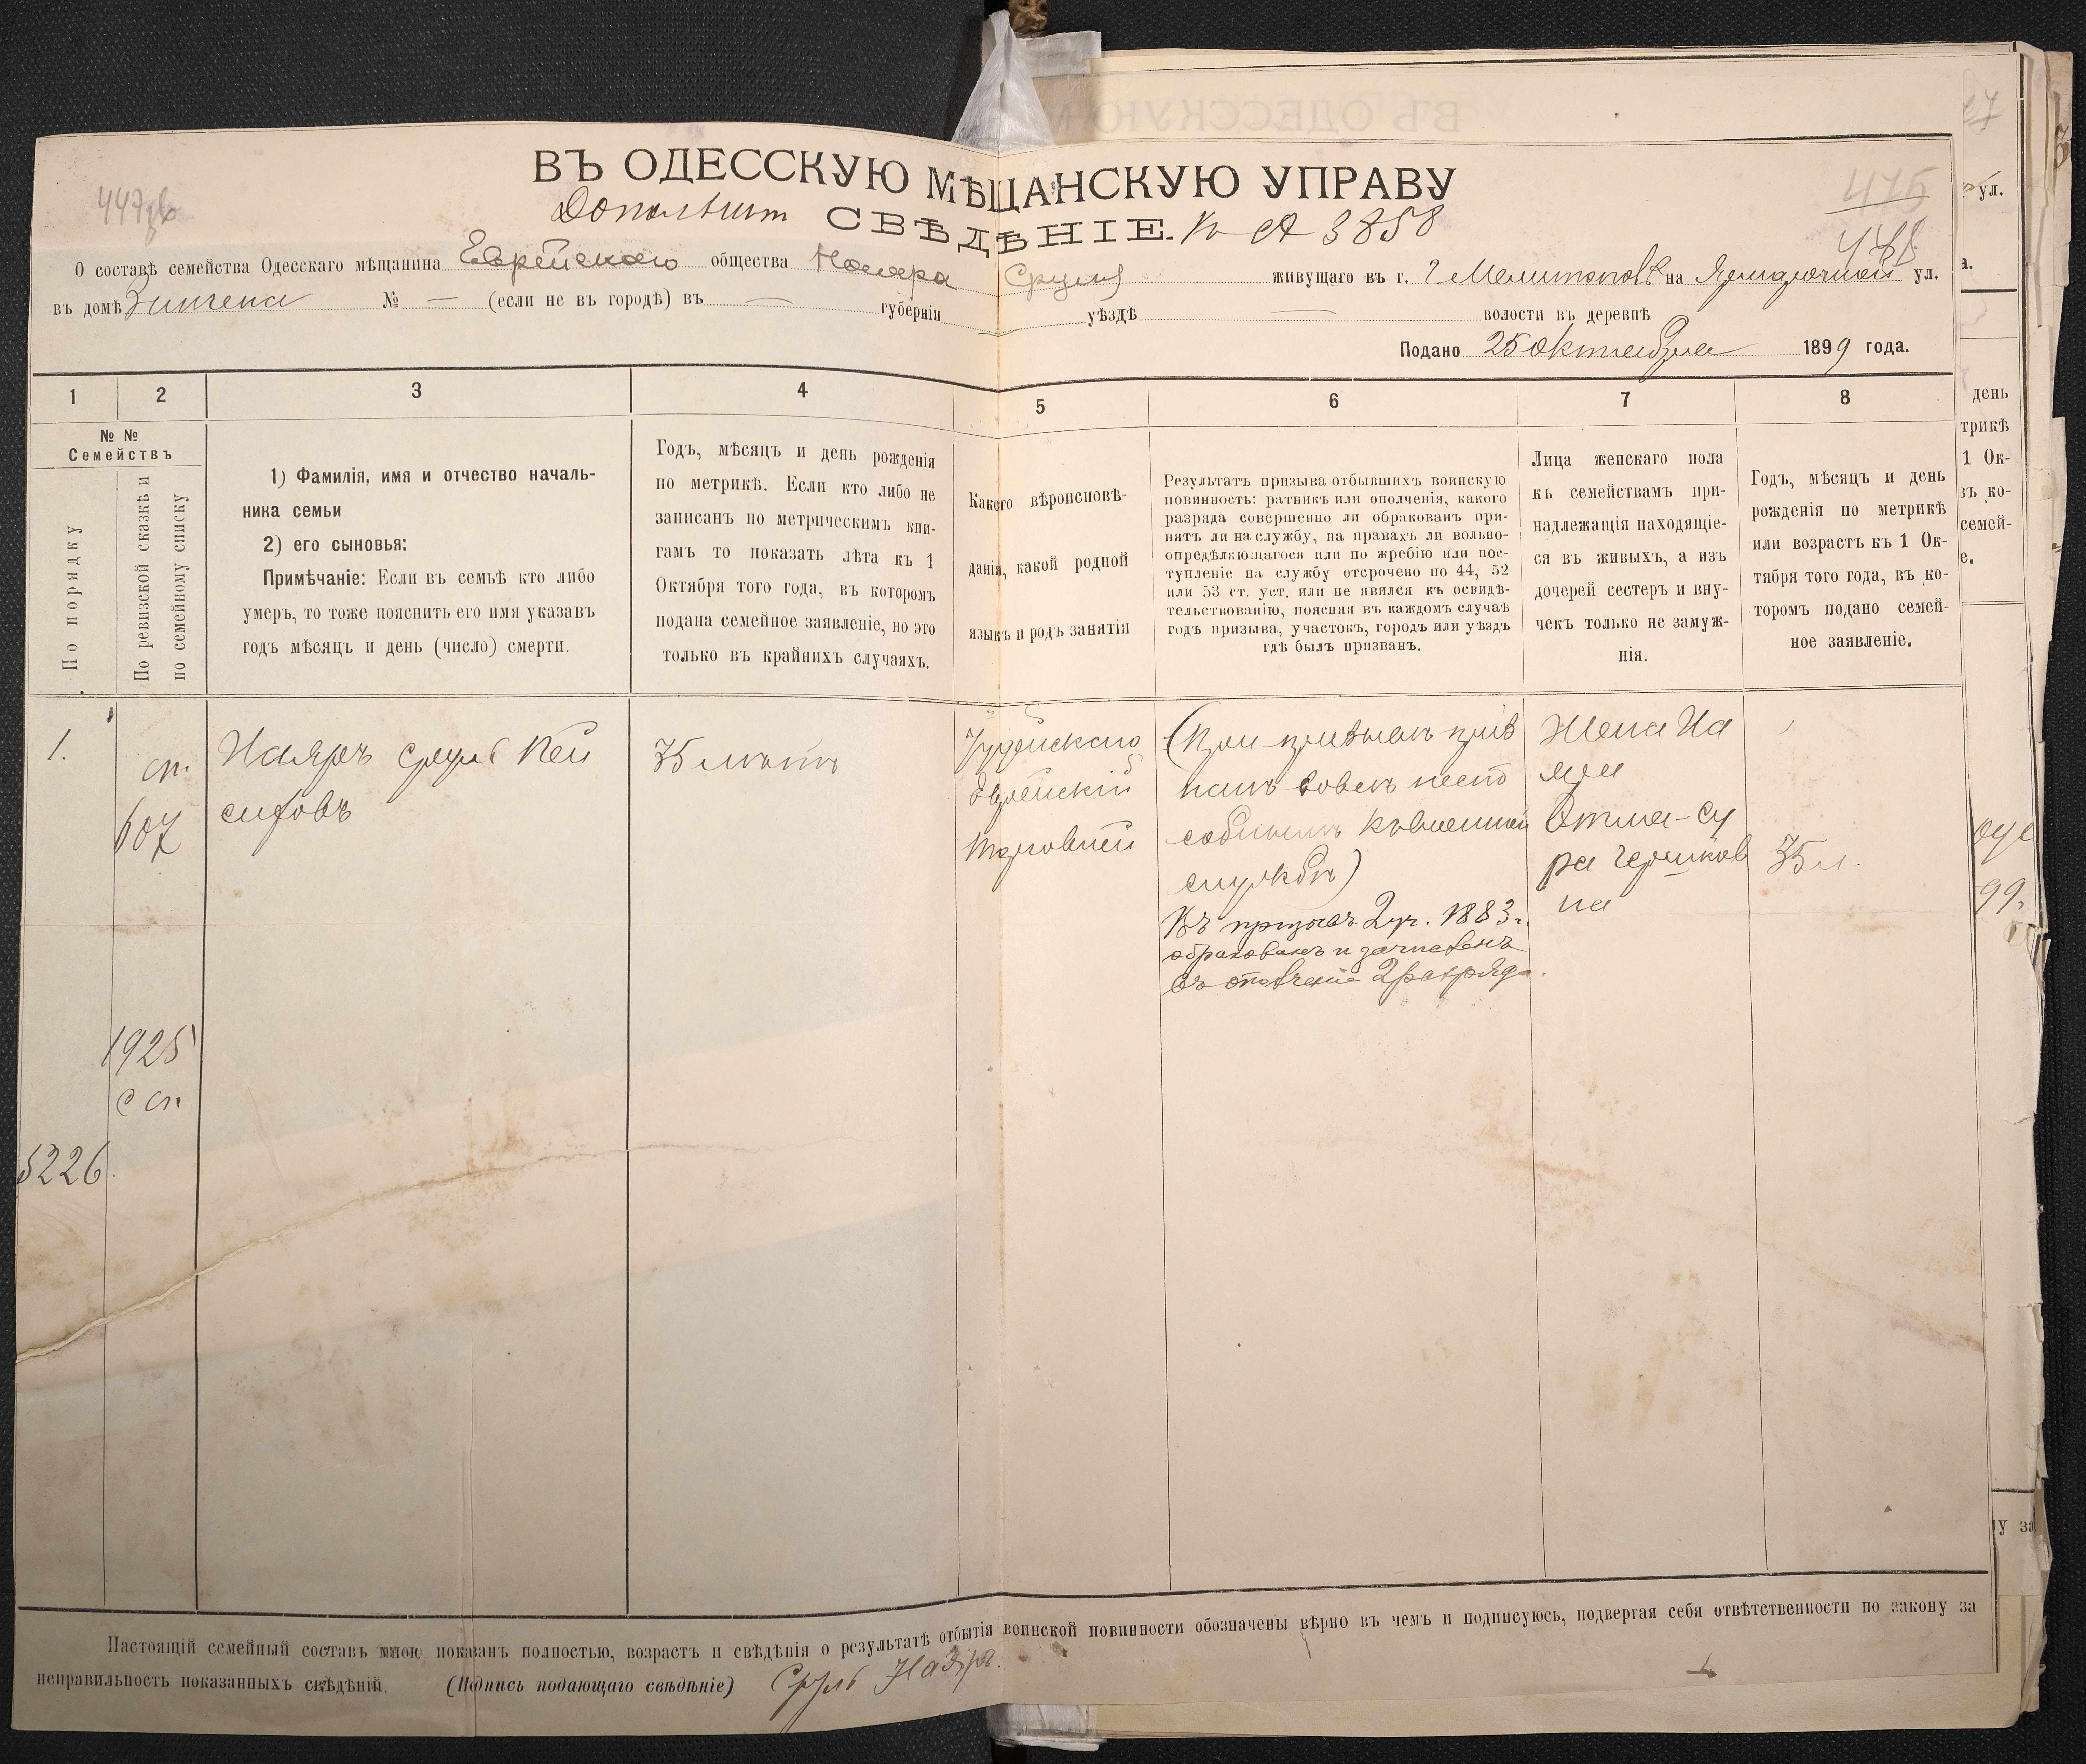 ВЪ ОДЕССКУЮ МѢЩАНСКУЮ УПРАВУ
475
СВѢДѢНІЕ. к А 3858
О составѣ семейства Одесскаго мѣщанина Еврейскаго общества Наляра Сруля живущаго въ г. г Мелитополѣ на Ярмарочной ул.
въ домѣ № — (если не въ городѣ) въ — губерніи уѣздѣ — волости въ деревнѣ
Подано 25 октября 1899 года.
1 2 3 4 5 6 7 8
№ №
Семействъ
По порядку
По ревизской сказкѣ и
по семейному списку
1) Фамилія, имя и отчество началь-
ника семьи
2) его сыновья:
Примѣчаніе: Если въ семьѣ кто либо
умеръ, то тоже пояснить его имя указавъ
годъ мѣсяцъ и день (число) смерти.
Годъ, мѣсяцъ и день рожденія
по метрикѣ. Если кто либо не
записанъ по метрическимъ кни-
гамъ то показать лѣта къ 1
Октября того года, въ которомъ
подана семейное заявленіе, но это
только въ крайнихъ случаяхъ.
Какого вѣроисповѣ-
данія, какой родной
языкъ и родъ занятія
Результатъ призыва отбывшихъ воинскую
повинность: ратникъ или ополченія, какого
разряда совершенно ли обракованъ при-
нятъ ли на службу, на правахъ ли вольно-
опредѣляющагося или по жребію или пос-
тупленіе на службу отсрочено по 44, 52
или 53 ст. уст. или не явился къ освидѣ-
тельствованію, поясняя въ каждомъ случаѣ
годъ призыва, участокъ, городъ или уѣздъ
гдѣ былъ призванъ.
Лица женскаго пола
къ семействамъ при-
надлежащія находящіе-
ся въ живыхъ, а изъ
дочерей сестеръ и вну-
чекъ только не замуж-
нія.
Годъ, мѣсяцъ и день
рожденія по метрикѣ
или возрастъ къ 1 Ок-
тября того года, въ ко-
торомъ подано семей-
ное заявленіе.
1.
сп.
607
Наляръ Сруль Кей
сифовъ
35 лѣтъ
Іудейскаго
Еврейскій
торговлей
(При призывѣ приз
нанъ вовсе неспо
собнымъ къ военной
службѣ)
Въ призывъ 2 уч. 1883 г.
обракованъ и зачисленъ
въ ополченіе 2 разряда.
Жена На
ляра
Этля-Су
ра
на
35 л.
1925
с сп.
5226
Настоящій семейный составъ мною показанъ полностью, возрастъ и свѣдѣнія о результатѣ отбытія воинской повинности обозначены вѣрно въ чемъ и подписуюсь, подвергая себя отвѣтственности по закону за
неправильность показанныхъ свѣдѣній. (Подпись подающаго свѣдѣніе) Сруль Наляръ.
ул.
а.
день
трикѣ
1 Ок-
въ ко-
семей-
е.
99.
у за